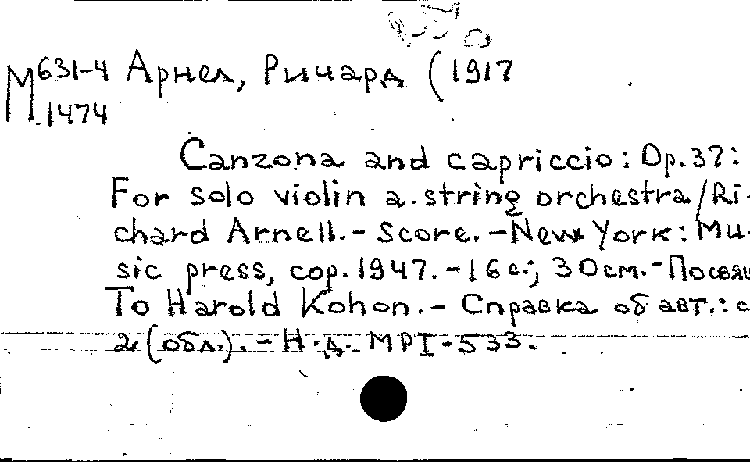 М 631-4 Арнел, Ричард (1917
1474
Canzona and capriccio: Op.37:
For solo violin a. string orchestra/Ri-
chard Arnell.- Score.-New York: Mu-
sic press, cop.1947.-16 с.; 30см.-Посвящ
To Harold Kohon.- Справка об авт.: с
2 (обл.).-Н.д. MPI-533.